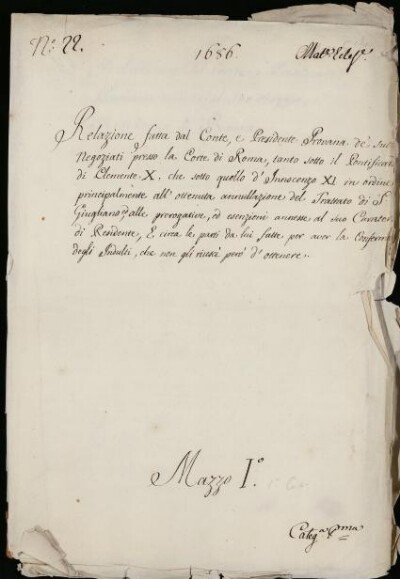 N.º 22.
1686
Mat.ᵉ Eccl.ᵉ
Relazione fatta dal Conte, e Presidente Provana de' suoi
Negoziati presso la Corte di Roma, tanto sotto il Pontificato
di Clemente X. che sotto quello d'Innocenzo XI. in ordine
principalmente all'ottenuta annullazione del Trattato di S.
Giugliano, alle prerogative, ed esenzioni annesse al suo Carattere
di Residente, E circa le parti da lui fatte per aver la Conferma
degli Indulti, che non gli riuscì però d'ottenere.
Mazzo I.º
Categ.ª P.ma